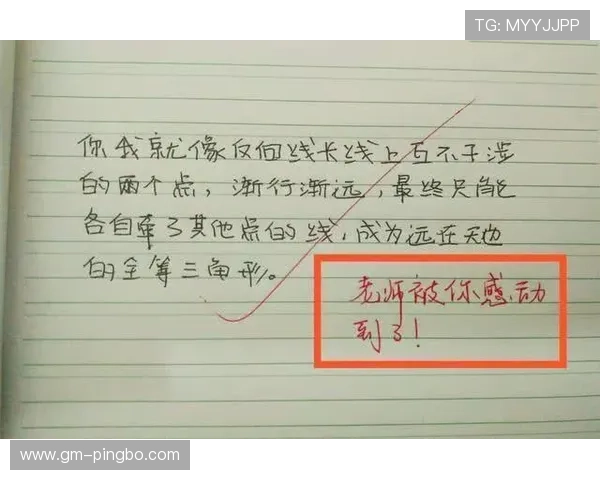 TG: MYYJJPP
你我就像反向延长线上互不干涉
的两个点，渐行渐远，最终只能
各自牵了其他点的线，成为远在天边
的全等三角形。
老师被你感动
到了！
www.gm-pingbo.com